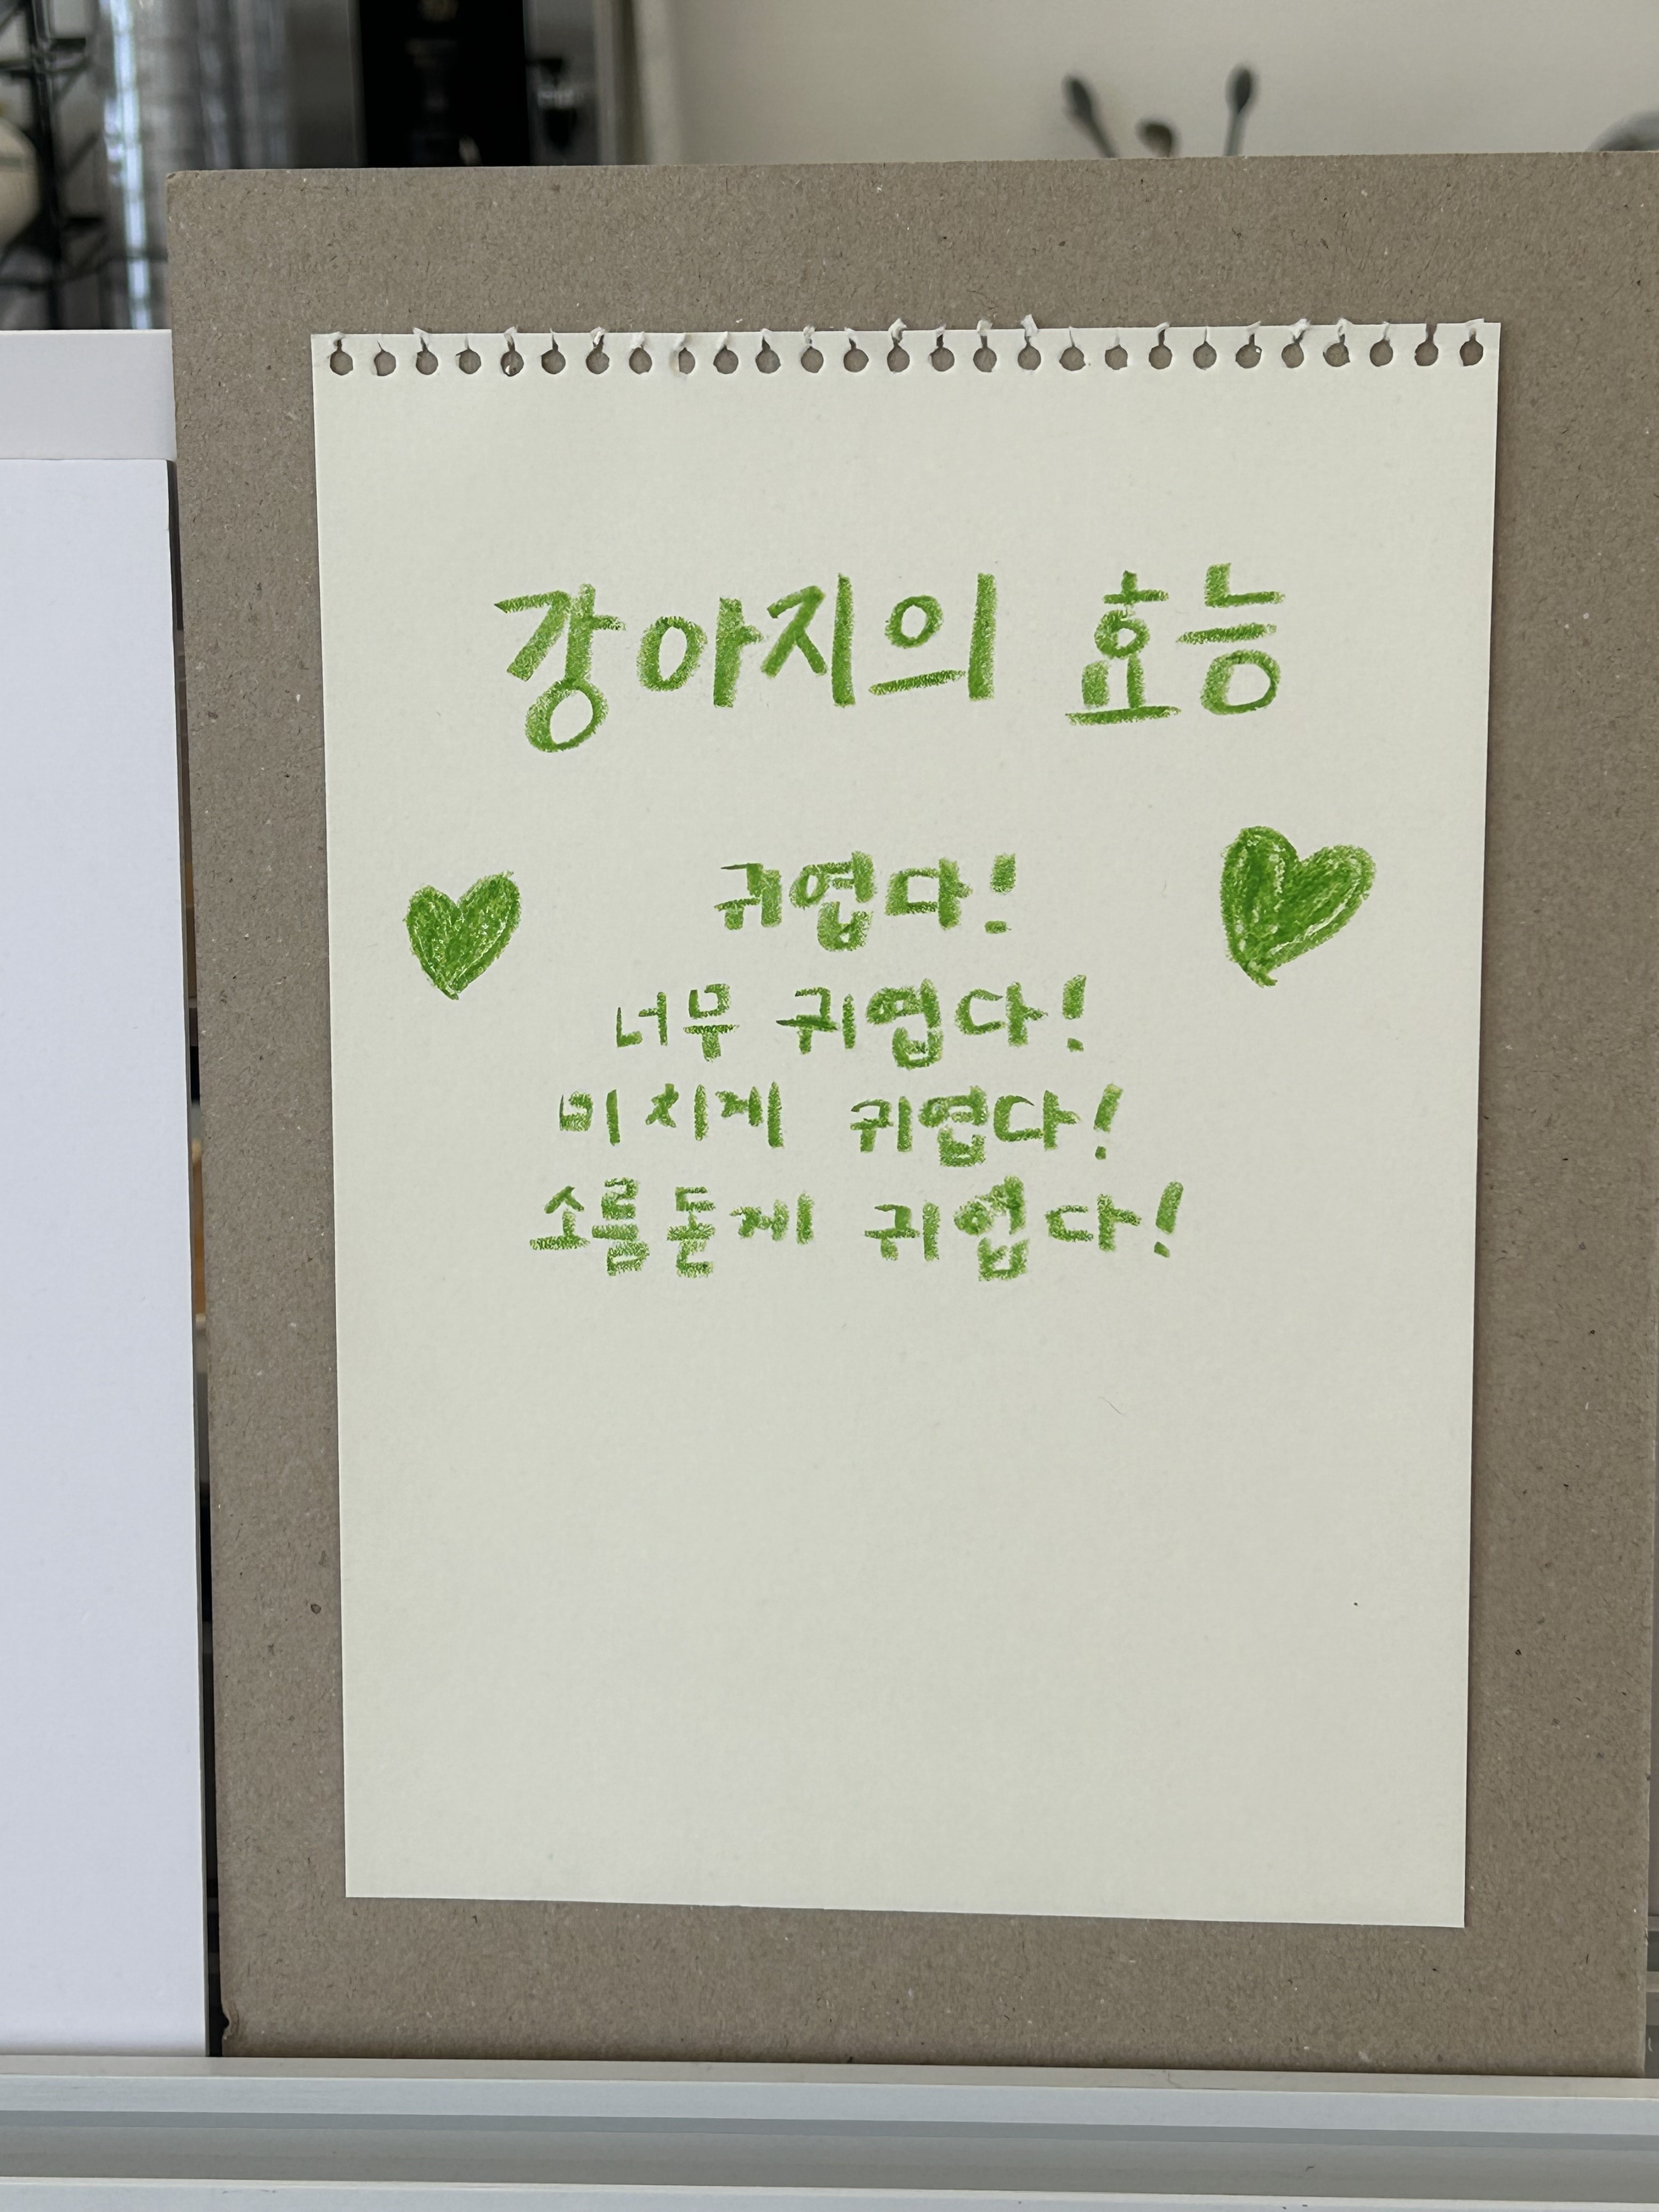 강아지의 효능
귀엽다!
너무 귀엽다!
미치게 귀엽다!
소름돋게 귀엽다!